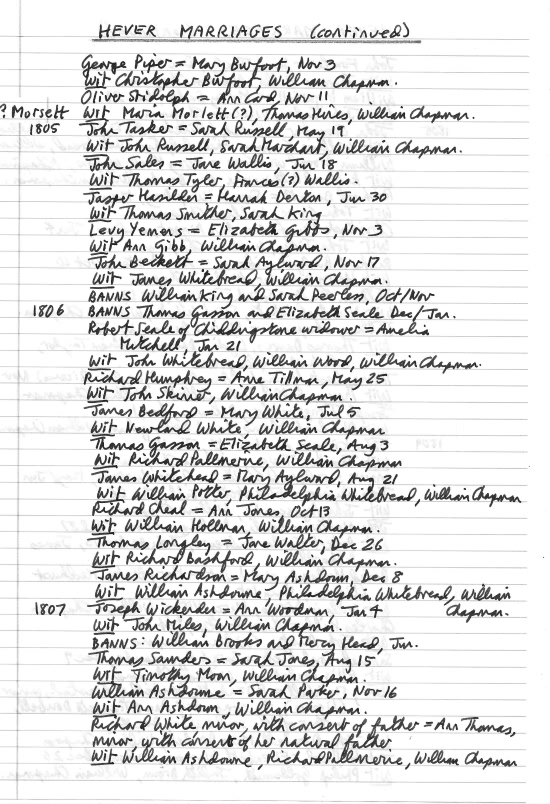 HEVER MARRIAGES (continued)
George Piper = Mary Burfoot, Nov 3
Wit Christopher Burfoot, William Chapman.
Oliver Stidolph = Ann Card, Nov 11
? Morsett Wit Maria Morlett(?), Thomas Hires, William Chapman.
1805 John Tasker = Sarah Russell, May 19
Wit John Russell, Sarah Marchant, William Chapman.
John Sales = Jane Wallis, Jun 18
Wit Thomas Tyler, Frances(?) Wallis.
Jasper Hasilder = Hannah Denton, Jun 30
Wit Thomas Smither, Sarah King
Levy Yemens = Elizabeth Gibbs, Nov 3
Wit Ann Gibb, William Chapman.
John Beckett = Sarah Aylward, Nov 17
Wit James Whitebread, William Chapman.
BANNS William King and Sarah Peerless, Oct/Nov
1806 BANNS Thomas Gasson and Elizabeth Seale Dec/Jan.
Robert Seale of Chiddingstone widower = Amelia
Mitchell, Jan 21
Wit John Whitebread, William Wood, William Chapman.
Richard Humphrey = Anne Tillman, May 25
Wit John Skiner, William Chapman.
James Bedford = Mary White, Jul 5
Wit Newland White, William Chapman
Thomas Gasson = Elizabeth Seale, Aug 3
Wit Richard Pallmerie, William Chapman
James Whitehead = Mary Aylward, Aug 21
Wit William Potter, Philadelphia Whitebread, William Chapman
Richard Cheal = Ann Jones, Oct 13
Wit William Hollman, William Chapman.
Thomas Longley = Jane Walter, Dec 26
Wit Richard Bashford, William Chapman.
James Richardson = Mary Ashdown, Dec 8
Wit William Ashdowne, Philadelphia Whitebread, William
1807 Joseph Wickenden = Ann Woodman, Jan 4 Chapman.
Wit John Miles, William Chapman.
BANNS: William Brooks and Mercy Head, Jun.
Thomas Saunders = Sarah Jones, Aug 15
Wit Timothy Moon, William Chapman.
William Ashdowne = Sarah Parker, Nov 16
Wit Ann Ashdown, William Chapman.
Richard White minor, with consent of father = Ann Thomas,
minor, with consent of her natural father
Wit William Ashdowne, Richard Pallmerie, William Chapman